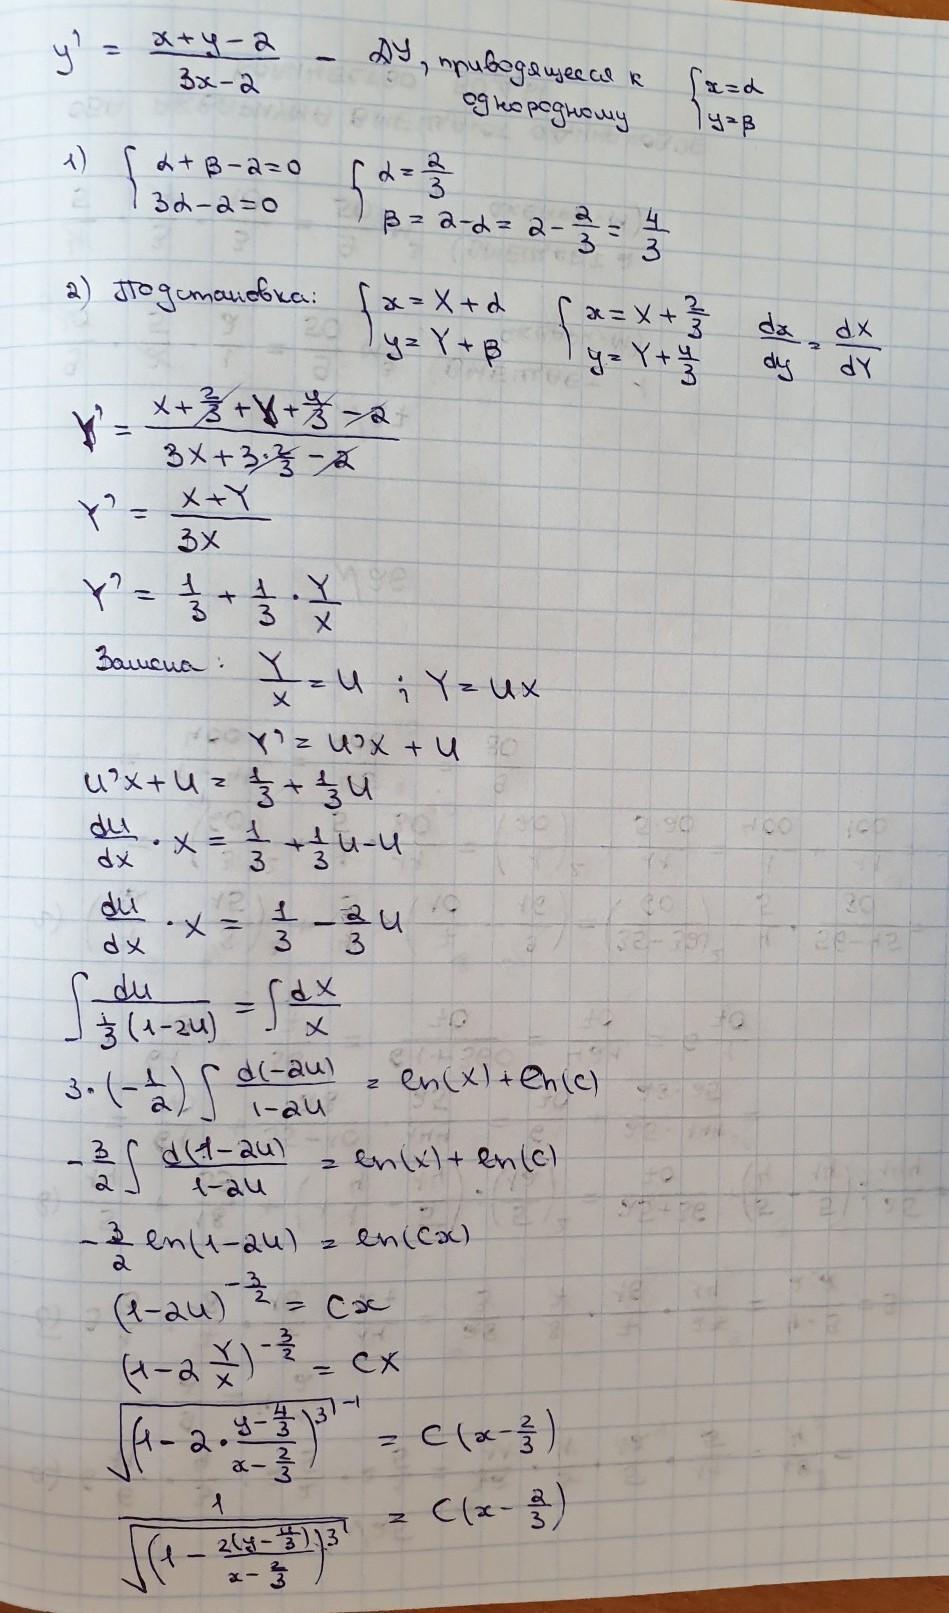 y' = (x+y-2)/(3x-2) - ДУ, приводящееся к однородному { x=α y=β
1) { α+β-2=0 3α-2=0 { α=2/3 β=2-α=2-2/3=4/3
2) Подстановка: { x=X+α y=Y+β { x=X+2/3 y=Y+4/3 dx/dy=dX/dY
Y' = (X+2/3+Y+4/3-2)/(3X+3·2/3-2)
Y' = (X+Y)/(3X)
Y' = 1/3 + 1/3 · Y/X
Замена: Y/X = U ; Y=UX
Y' = U'X + U
U'X+U = 1/3 + 1/3 U
dU/dX · X = 1/3 + 1/3 U - U
dU/dX · X = 1/3 - 2/3 U
∫ dU/(1/3 (1-2U)) = ∫ dX/X
3·(-1/2) ∫ d(-2U)/(1-2U) = ln(X)+ln(C)
-3/2 ∫ d(1-2U)/(1-2U) = ln(X)+ln(C)
-3/2 ln(1-2U) = ln(CX)
(1-2U)^(-3/2) = CX
(1-2 Y/X)^(-3/2) = CX
√((1-2·(y-4/3)/(x-2/3))^3)^(-1) = C(x-2/3)
1/√((1-2(y-4/3)/(x-2/3))^3) = C(x-2/3)